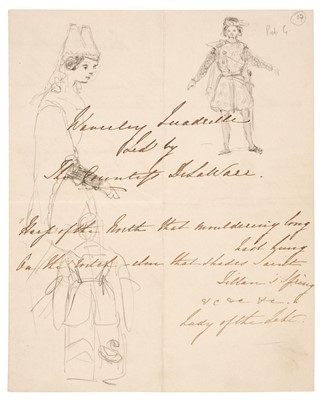 Waverley Quadrille
Led by
The Countess DeLaWarr.
'Harp of the North that mouldering long
hast hung
On the witch-elm that shades Saint
Fillan's Spring
&c &c &c.
Lady of the Lake.